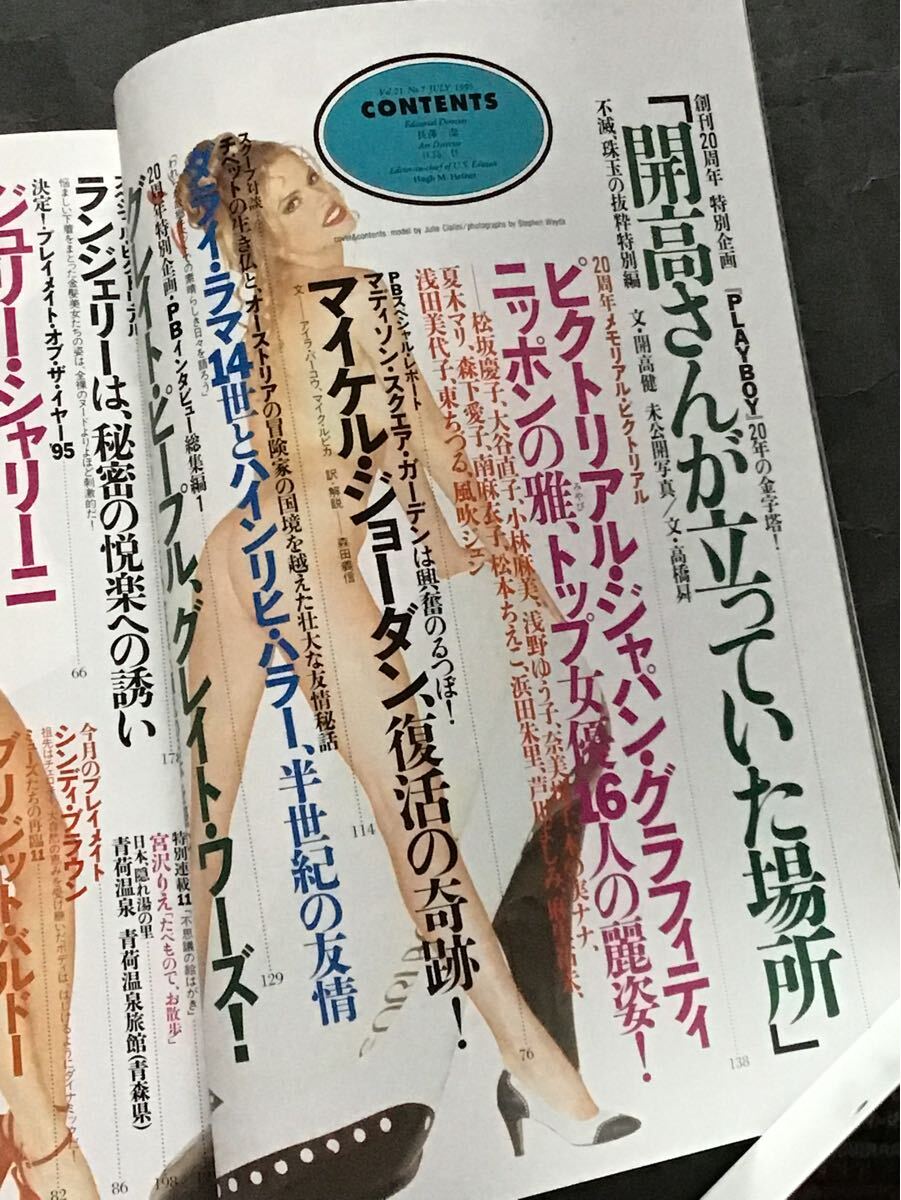 Vol.21 No.7 JULY 1995
CONTENTS
Editorial Director
Art Director
Editor-in-chief of U.S. Edition
Hugh M. Hefner
cover&contents: model by Julie Cialini/photographs by Stephen Wayda
創刊20周年 特別企画 『PLAYBOY』20年の金字塔！
「開高さんが立っていた場所」
不滅、珠玉の抜粋特別編 文・開高健 未公開写真／文・高橋曻
138
20周年メモリアル・ピクトリアル
ピクトリアル・ジャパン・グラフィティ
ニッポンの雅、トップ女優16人の麗姿！
みやび
松坂慶子、大谷直子、小林麻美、浅野ゆう子、奈美
の実ナナ、
夏木マリ、森下愛子、南麻衣子、松本ちえこ、浜田朱里、芦川よしみ、
浅田美代子、東ちづる、風吹ジュン
76
PBスペシャルレポート
マディソン・スクエア・ガーデンは興奮のるつぼ！
マイケル・ジョーダン、復活の奇跡！
文――アイラ・バーコウ、マイク・ルピカ 訳・解説――森田義信
114
スクープ対談
チベットの生き仏と、オーストリアの冒険家の国境を越えた壮大な友情秘話
ダライ・ラマ14世とハインリヒ・ハラー、半世紀の友情
129
の素晴らしき日々を語ろう」
20周年特別企画・PBインタビュー総集編！
グレイト・ピープル、グレイト・ワーズ！
178
特別連載11「不思議の絵はがき」
宮沢りえ「たべもので、お散歩」
198
日本、隠れ湯の里
青荷温泉 青荷温泉旅館（青森県）
86
ランジェリーは、秘密の悦楽への誘い
悩ましい下着をまとった金髪美女たちの姿は、全裸のヌードよりよほど刺激的だ！
66
今月のプレイメイト
シンディ・ブラウン
祖先はチェロ
恵みを受け継いだボディは、はじけるようにダイナミックだ！
決定！プレイメイト・オブ・ザ・イヤー'95
ジュリー・シャリーニ
ミューズたちの再臨11
ブリジット・バルドー
82